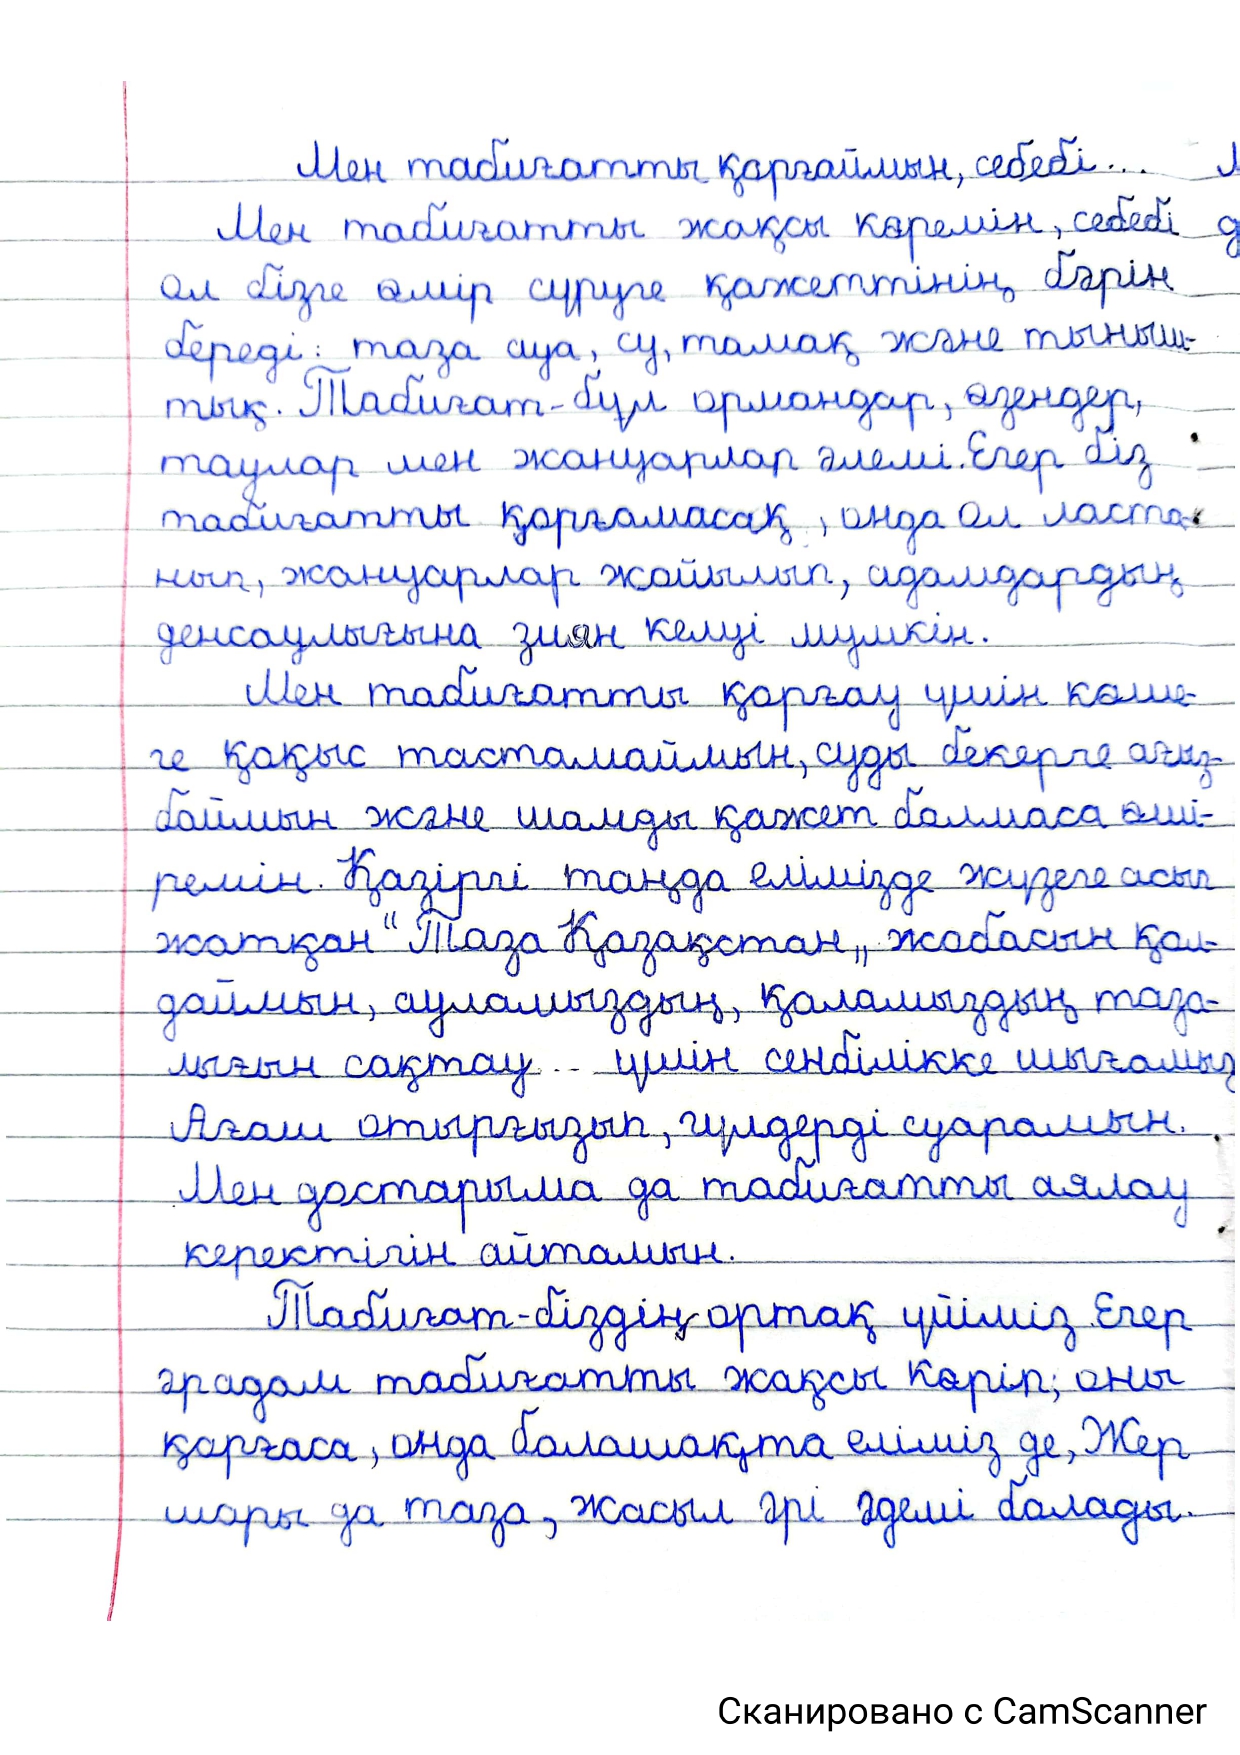 Мен табиғатты қорғаймын, себебі...
Мен табиғатты жақсы көремін, себебі
ол бізге өмір сүруге қажеттінің бәрін
береді: таза ауа, су, тамақ және тыныш-
тық. Табиғат-бұл ормандар, өзендер,
таулар мен жануарлар әлемі. Егер біз
табиғатты қорғамасақ, онда ол ласта-
нып, жануарлар жойылып, адамдардың
денсаулығына зиян келуі мүмкін.
Мен табиғатты қорғау үшін көше-
ге қоқыс тастамаймын, суды бекерге ағыз-
баймын және шамды қажет болмаса өші-
ремін. Қазіргі таңда елімізде жүзеге асып
жатқан "Таза Қазақстан" жобасын қол-
даймын, ауламыздың, қаламыздың таза-
лығын сақтау үшін сенбілікке шығамыз
Ағаш отырғызып, гүлдерді суарамын.
Мен достарыма да табиғатты аялау
керектігін айтамын.
Табиғат-біздің ортақ үйіміз. Егер
әрадам табиғатты жақсы көріп, оны
қорғаса, онда болашақта еліміз де, Жер
шары да таза, жасыл әрі әдемі болады.
Сканировано с CamScanner